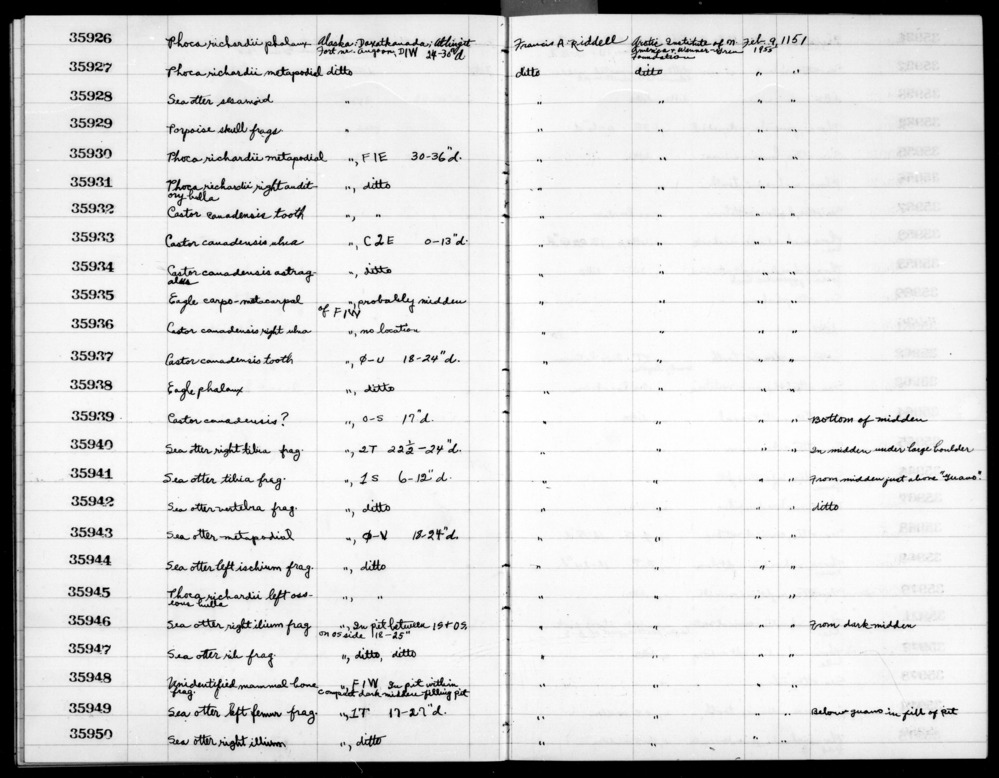 35926 Phoca richardii phalanx Alaska: Daxatkanada; Tlingit Francis A. Riddell Arctic Institute of N. Feb. 9, 1151
Fort nr. Angoon, D1W 24-30"d America + Wenner-Gren 1955
Foundation
35927 Phoca richardii metapodial ditto ditto ditto " "
35928 Sea otter sesamoid " " " " "
35929 Porpoise skull frags. " " " " "
35930 Phoca richardii metapodial ", F1E 30-36"d. " " " "
35931 Phoca richardii right audit- ", ditto " " " "
ory bulla
35932 Castor canadensis tooth ", " " " " "
35933 Castor canadensis ulna ", C2E 0-13"d. " " " "
35934 Castor canadensis astrag- ", ditto " " " "
alus
35935 Eagle carpo-metacarpal ", probably midden " " " "
of F1W
35936 Castor canadensis right ulna ", no location " " " "
35937 Castor canadensis tooth ", Ø-U 18-24"d. " " " "
35938 Eagle phalanx ", ditto " " " "
35939 Castor canadensis? ", O-S 17"d. " " " " Bottom of midden
35940 Sea otter right tibia frag. ", 2T 22½-24"d. " " " " In midden under large boulder
35941 Sea otter tibia frag. ", 1S 6-12"d. " " " " From midden just above "guano".
35942 Sea otter vertebra frag. ", ditto " " " " ditto
35943 Sea otter metapodial ", Ø-V 18-24"d. " " " "
35944 Sea otter left ischium frag. ", ditto " " " "
35945 Phoca richardii left oss- ", " " " " "
eous bulla
35946 Sea otter right ilium frag ", In pit between 1S + OS, " " " " From dark midden
on OS side 18-25"
35947 Sea otter rib frag. ", ditto, ditto " " " "
35948 Unidentified mammal bone ", F1W In pit within " " " "
frag. compact dark midden-filling pit
35949 Sea otter left femur frag. ", 1T 17-27"d. " " " " Below guano in fill of pit
35950 Sea otter right illium ", ditto " " " "